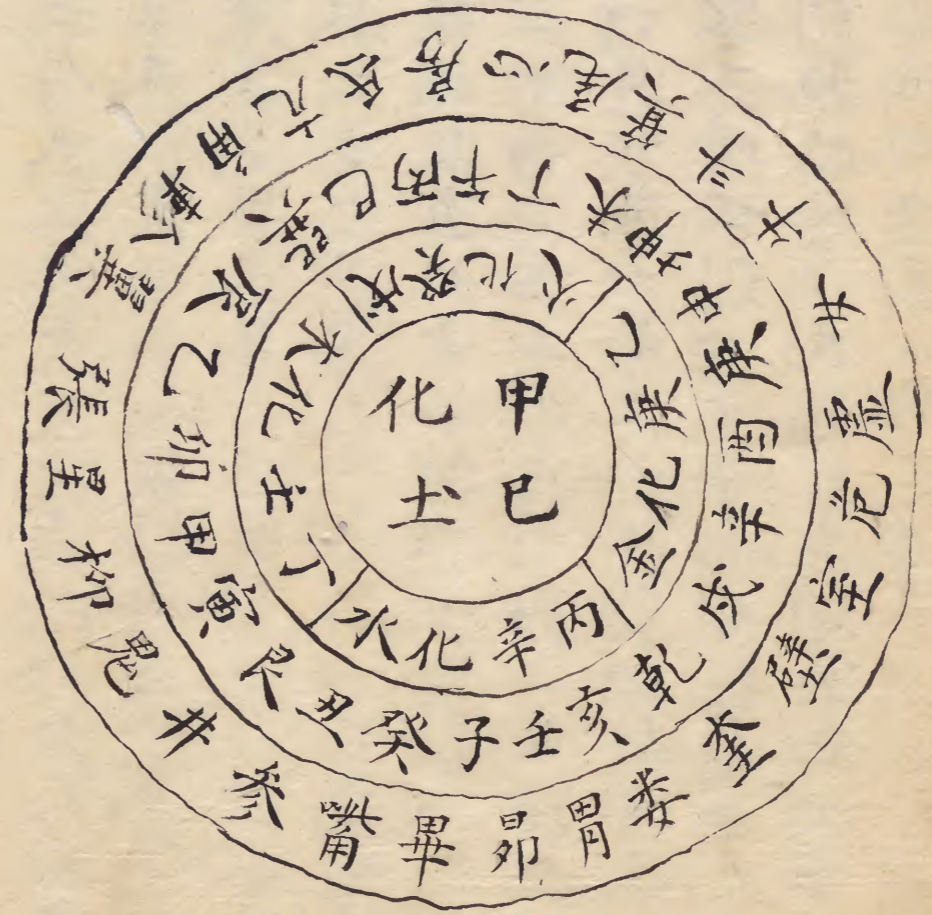 甲巳
化土
丙辛化水
丁壬化木
戊癸化火
乙庚化金
子癸丑艮寅甲卯乙辰巽巳丙午丁未坤申庚酉辛戌乾亥壬
角亢氐房心尾箕斗牛女虛危室壁奎娄胃昴畢嘴參井鬼柳星張翼軫